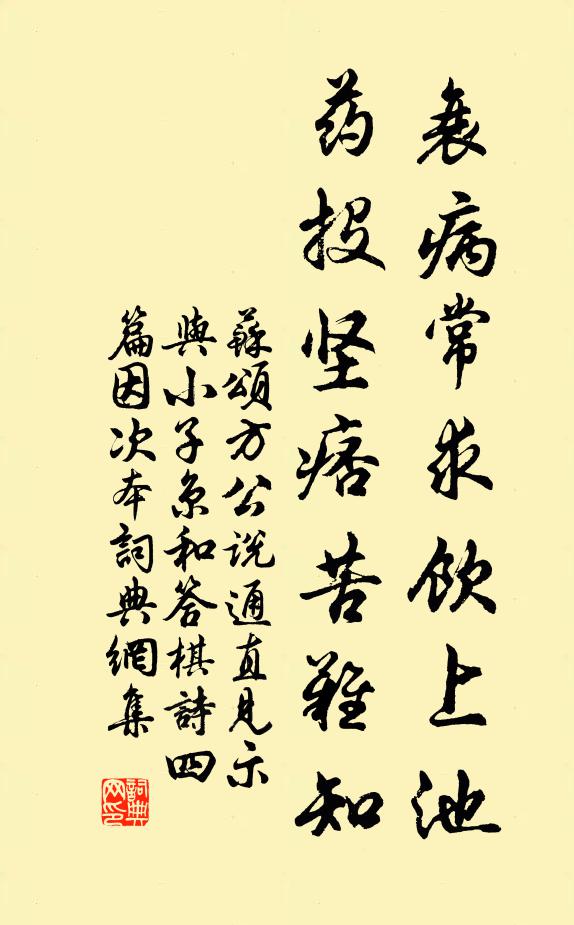 衰病常求饮上池
药投坚痞苦難知
蘇頌方公说通直見示
與小子京和答棋詩四
篇因次本詞典網集
詞典网印